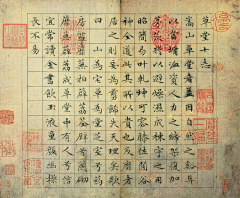 草堂十志
嵩山草堂者蓋因自然之谿阜
以當墉洫資人力之締架復加
茅茨將以避燥濕成棟宇之用
昭簡易叶乾坤可容膝休閒谷
神全道此其所以貴也及靡者
居之則妄為剪飾失天理矣歌
曰 山為宅兮草為堂芝蘭兮藥
房羅蘼蕪兮拍薜荔荃壁兮蘭砌
蘼蕪薜荔兮成草堂中有人兮信
宜常讀金書飲玉液童顏幽操
長不易